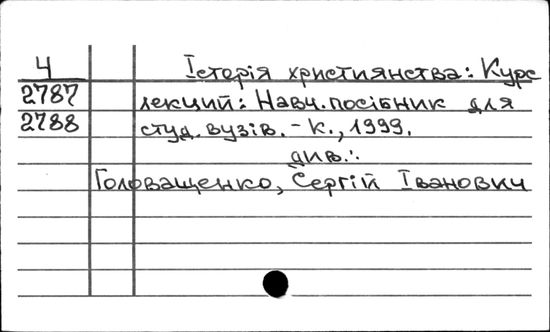 4 Історія християнства: Курс
2787 лекций: Навч. посібник для
2788 студ. вузів. - К., 1999.
див.:
Головащенко, Сергій Іванович